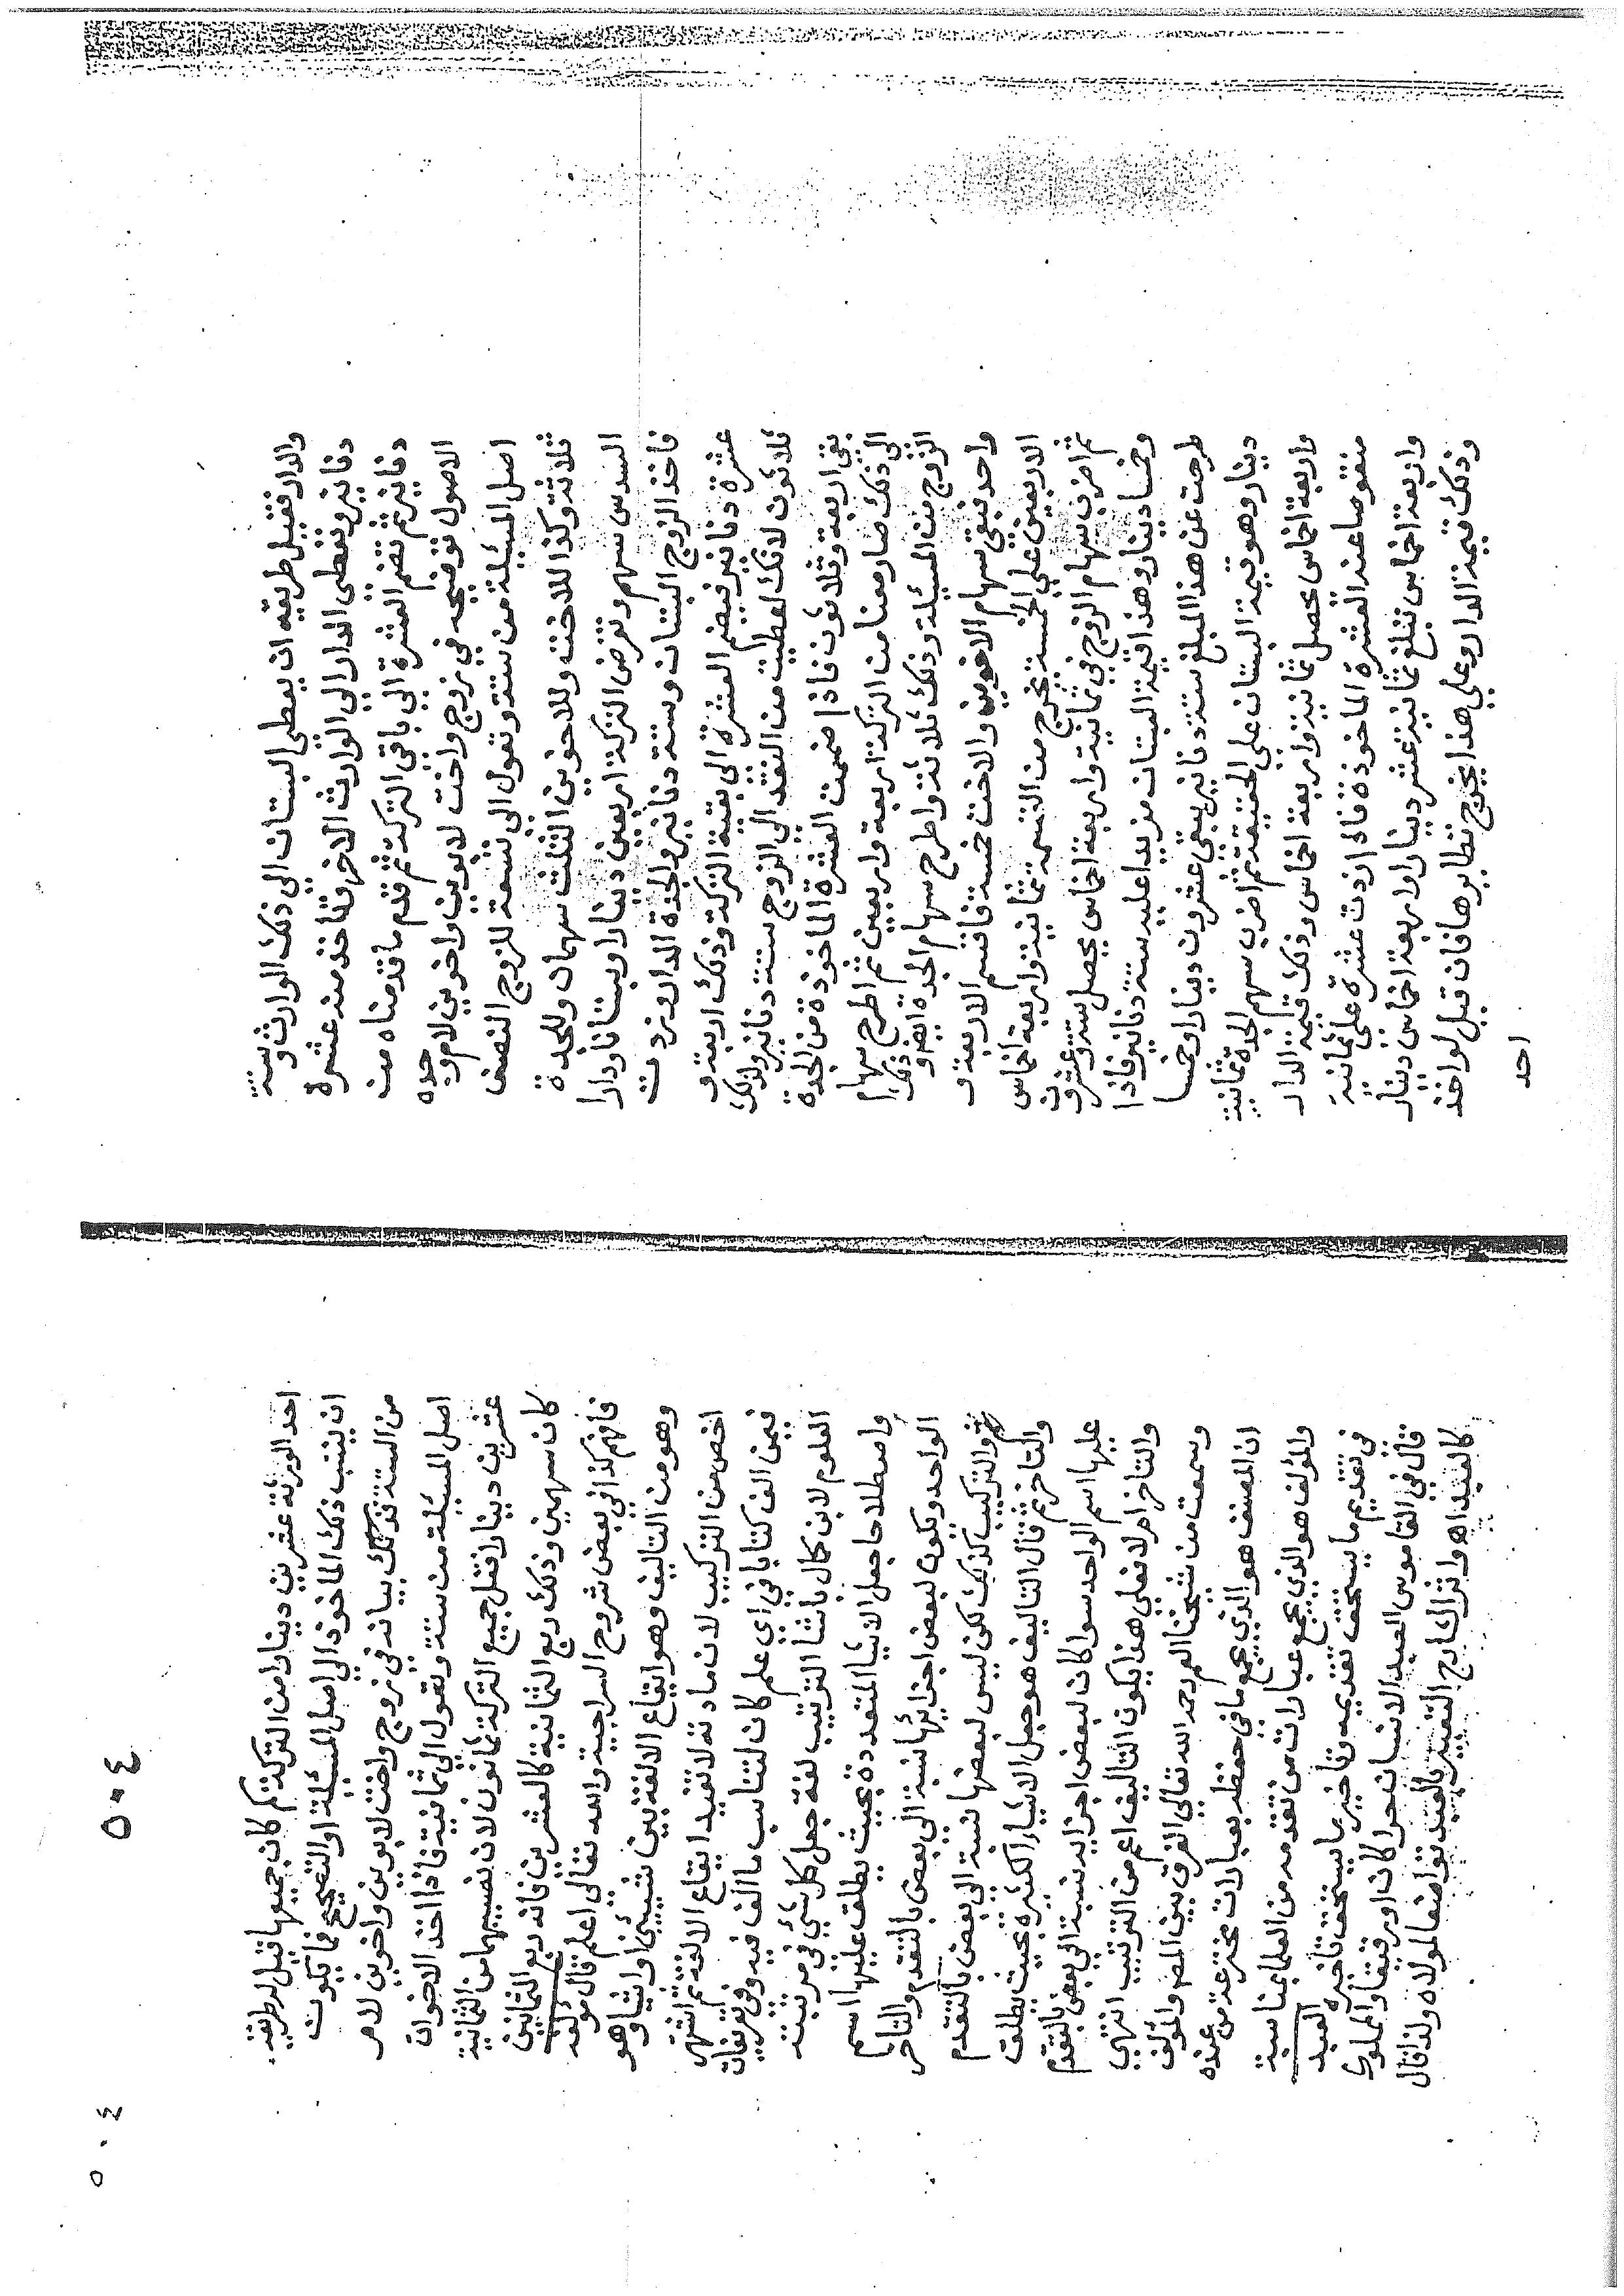 والدار فقيل طريقه ان يعطى البستان الى ذلك الوارث و ستة
دنانير و تعطى الدار الى الوارث الاخر فتاخذ منه عشرة
دنانير ثم تضم العشرة الى باقى التركة ثم قدم ما قدمناه من
الاصول توضيحه في زوج واخت لابوين واخوين لام و جده
اصل المسئلة من ستة وتعول الى تسعة للزوج النصف
ثلاثة وكذا للاخت وللاخوين الثلث سهمان وللجدة
السدس سهم وتفرض التركة اربعين دينارا وبستانا ودارا
فاخذ الزوج البستان وستة دنانير والجدة الدار وردت
عشرة دنانير فيضم العشرة الى بقية التركة وذلك اربعة و
ثلاثون لانك اعطيت من النقد الى الزوج ستة دنانير ولذلك
بقى اربعة وثلاثون فاذا ضممت العشرة الماخوذة من الجدة
الى ذلك صار معنا من التركة اربعة واربعين ثم اطرح سهام
الزوج من المسئلة وذلك ثلاثة واطرح سهام الجدة ايضا و ذلك
واحد فبقى سهام الاخوين والاخت خمسة فاقسم الاربعة و
الاربعين على الخمسة يخرج من القسمة ثمانية واربعة اخماس
ثم اضرب سهام الزوج في ثمانية واربعة اخماس يحصل ستة وعشرون
وخمسا دينار وهذا قيمة البستان مزيدا عليه ستة دنانير فاذا
طرحت عن هذا المبلغ ستة دنانير يبقى عشرون دينارا وخمسا
دينار وهو قيمة البستان على الحقيقة ثم اضرب سهم الجدة ثمانية
واربعة اخماس يحصل ثمانية واربعة اخماس وذلك قيمة الدار
منقوصا عنه العشرة الماخوذة فاذا زدت عشرة على ثمانية
واربعة اخماس تبلغ ثمانية عشر دينارا واربعة اخماس دينار
وذلك قيمة الدار وعلي هذا يخرج نظايرها فان قيل لو اخذ
احد
٥٠٤
٥٠٤
احد الورثة عشرين دينارا من التركة كم كان جميعها قيل طريقه
ان ينسب ذلك الماخوذ الي اصل المسئلة او التصحيح فما يكون
من النسبة تدرك بيانه في زوج واخت لابوين واخوين لام
اصل المسئلة من ستة وتعول الى ثمانية فاذا اخذ الاخوان
عشرين دينارا فقل جميع التركة ثمانون لان نصيبهما من الثمانية
كان سهمين وذلك ربع الثمانية كالعشرين فانه ربع الثمانين
فافهم كذا في بعض شروح السراجية والله تعالى اعلم قال مؤلفه
وهو من التاليف وهو ايقاع الالفة بين شيئين او اشيا و هو
اخص من التركيب لان مادته لا تفيد ايقاع الالفة ثم اشتهر
فيمن الف كتابا في اي علم كان لتناسب ما الف فيه وفي تعريفات
العلوم لابن كمال باشا الترتيب لغة جعل كل شئ في مرتبته
واصطلاحا جعل الاشيا المتعددة بحيث يطلق عليها اسم
الواحد ويكون لبعض اجزائها نسبة الى بعض بالتقدم والتاخر
والتركيب كذلك لكن ليس لبعضها نسبة الى بعض بالتقدم
والتاخر ثم قال التاليف هو جعل الاشياء الكثيرة بحيث يطلق
عليها اسم الواحد سوا كان لبعض اجزايه نسبة الى بعض بالتقدم
والتاخر ام لا فعلي هذا يكون التاليف اعم من الترتيب انتهي
وسمعت من شيخنا المرحوم رحمه الله تعالى الفرق بين المص والمؤلف
ان المصنف هو الذي يجمع ما في حفظه بعبارات مخترعة من عنده
والمؤلف هو الذي يجمع عبارات من تقدمه من العلما بمناسبة
في تقديم ما يستحق تقديمه وتأخير ما يستحق تأخيره العبد
قال في القاموس العبد الانسان حرا كان او رقيقا والمملوك
كالعبد اهـ واثر الشارح التعبير بالعبد تواضعا لمولاه ولذا قال